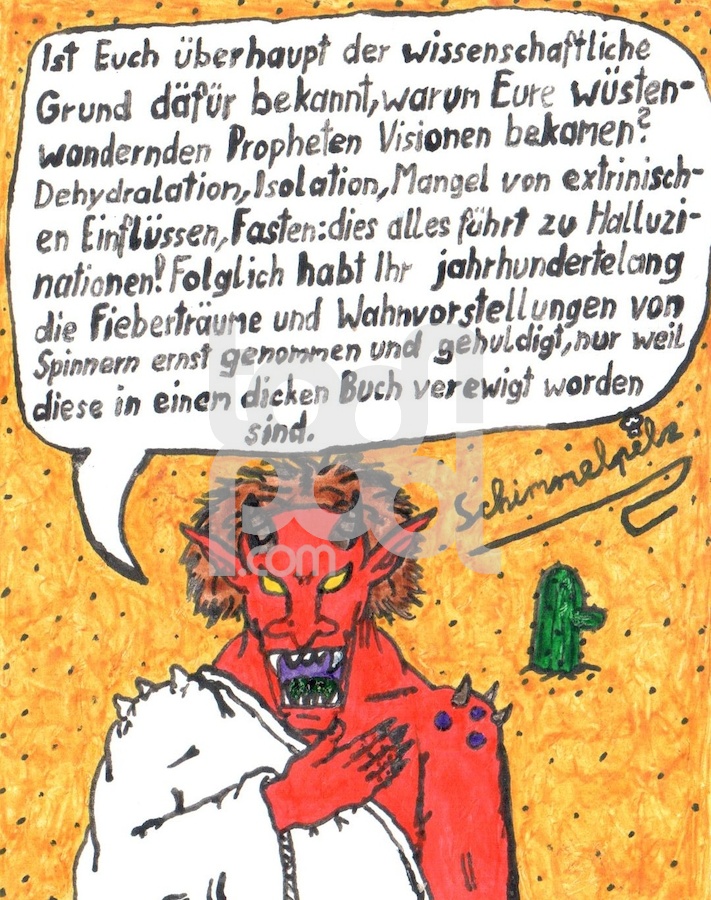 Ist Euch überhaupt der wissenschaftliche
Grund däfür bekannt, warum Eure wüsten-
wandernden Propheten Visionen bekamen?
Dehydralation, Isolation, Mangel von extrinisch-
en Einflüssen, Fasten: dies alles führt zu Halluzi-
nationen! Folglich habt Ihr jahrhundertelang
die Fieberträume und Wahnvorstellungen von
Spinnern ernst genommen und gehuldigt, nur weil
diese in einem dicken Buch verewigt worden
sind.
Schimmelpelz
toonpool
.com